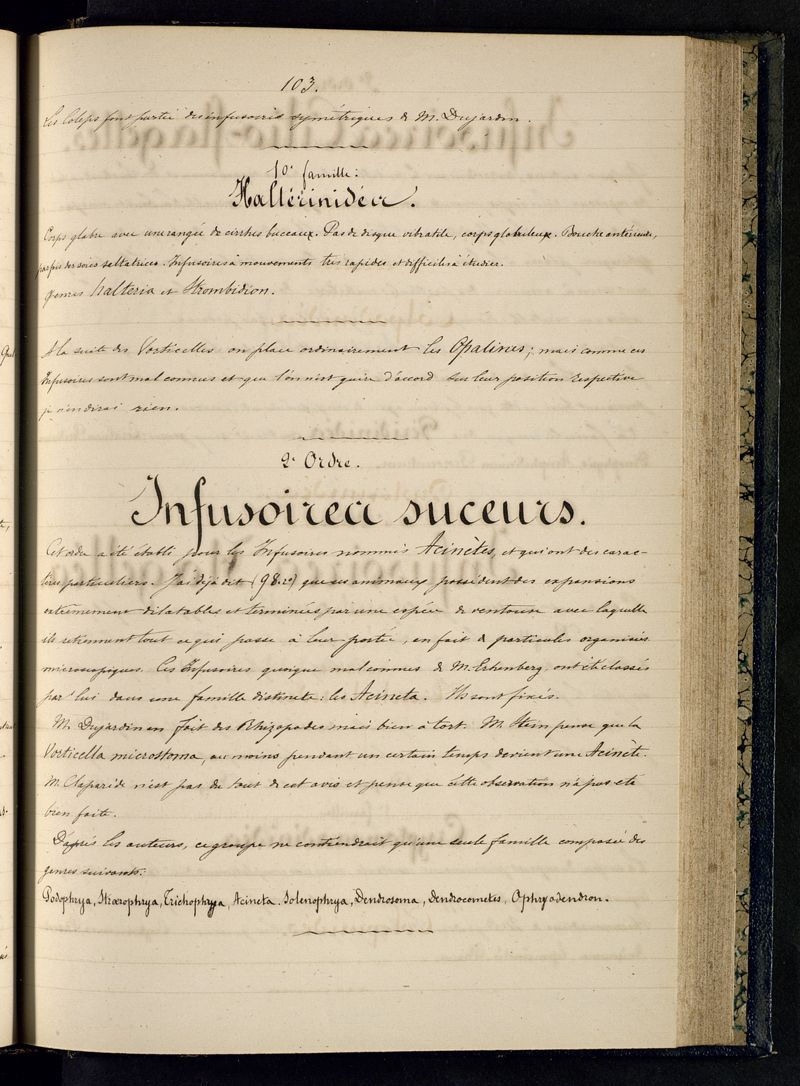 103.
Les Coleps font partie des infusoires symétriques de M. Dujardin.
10e famille:
Haltérinidea.
Corps glabre avec une rangée de cirrhes buccaux. Pas de disque vibratile, corps globuleux. Bouche antérieure,
parfois des soies saltatrices. Infusoires à mouvements très rapides et difficiles à étudier.
Genres Halteria et Strombidion.
A la suite des Vorticelles on place ordinairement les Opalines; mais comme ces
Infusoires sont mal connus et que l'on n'est guère d'accord sur leur position respective
je n'en dirai rien.
2e Ordre.
Infusoires suceurs.
Cet ordre a été établi pour les Infusoires nommés Acinètes, et qui ont des carac-
tères particuliers. J'ai déjà dit (98. 2o) que ces animaux possèdent des expansions
extrêmement dilatables et terminées par une espèce de ventouse avec laquelle
ils retiennent tout ce qui passe à leur portée, en fait de particules organisées
microscopiques. Ces Infusoires quoique mal connus de M. Erhenberg, ont été classés
par lui dans une famille distincte: les Acineta. Ils sont fixés.
M. Dujardin en fait des Rhizopodes mais bien à tort. M. Stein pense que la
Vorticella microstoma, au moins pendant un certain temps devient une Acinète.
M. Claparède n'est pas du tout de cet avis et pense que cette observation n'a pas été
bien faite.
D'après les auteurs, ce groupe ne contiendrait qu'une seule famille composée des
genres suivants:
Podophrya, Sphærophrya, Trichophrya, Acineta. Solenophrya, Dendrosoma, Dendrocometes, Ophryodendron.